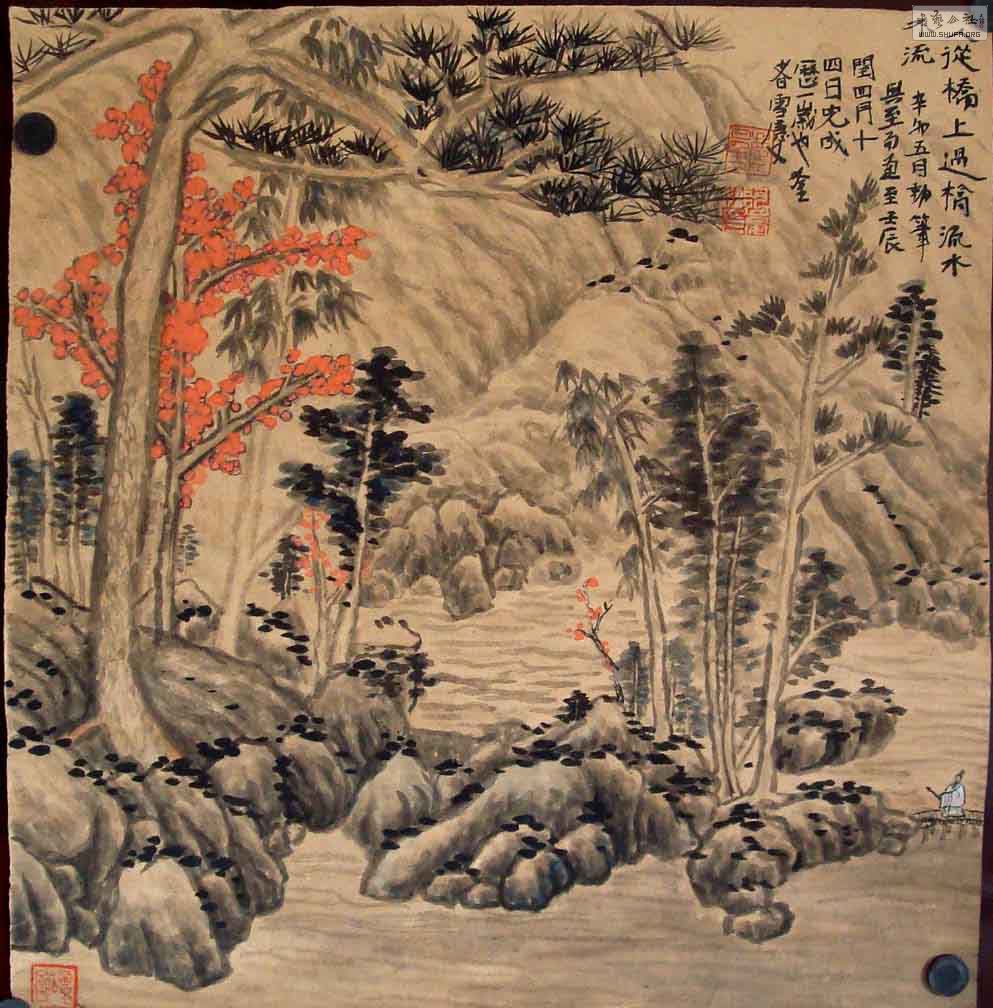 書藝公社
WWW.SHUFA.ORG
人從橋上過橋流水
不流
辛卯五月動筆
興至而畫至壬辰
閏四月十
四日完成
歷一歲也